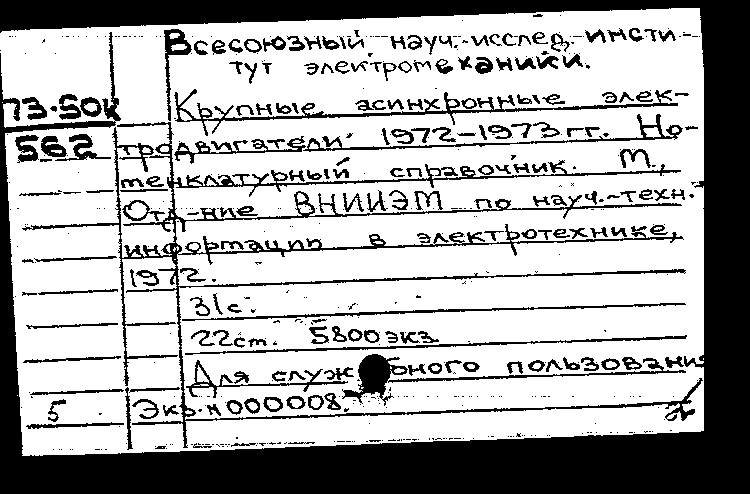 Всесоюзный науч.-исслед. инсти-
тут электромеханики.
73-50к
562
Крупные асинхронные элек-
тродвигатели. 1972-1973 гг. Но-
менклатурный справочник. М.,
Отд-ние ВНИИЭМ по науч.-техн.
информации в электротехнике,
1972.
31с.
22см. 5800 экз.
Для служебного пользования
5
Экз. н 000008.